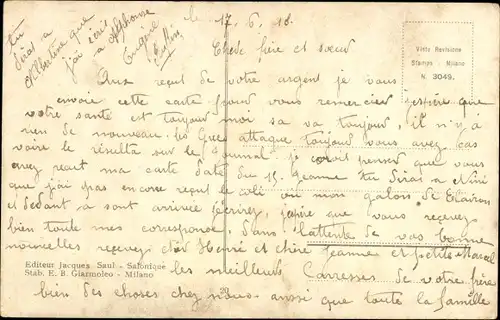 le 17.6.18.
Tu
diras a
Albertine que
j'ai écris
a Alphonse
Eugène
Cher frère et soeur
Visto Revisione
Stampa - Milano
N. 3049.
Aux reçut de votre argent je vous
envoie cette carte pour vous remercier j'espère que
votre santé est toujour moi sa va toujour, il n'y à
rien de nouveau. les Grecs attaque toujour vous avez
voire le résulta sur le Journal je croi pensez que vous
avez reçut ma carte daté du 15. Jeanne tu diras a Nini
que j'ai pas encorre reçut le coli ou mon galon. Si
il dedant à sont arrivée j'écrirez, j'espère que vous recevez
bien toute mes correspond. Dans l'attente de vos bonne
nouvelles recevez cher Henri et chère Jeanne et petite Marcel
les meilleurs Caresses de votre frère
bien des choses chez nous aussi que toute la famille
Editeur Jacques Saul - Salonique
Stab. E. B. Giarmoleo - Milano